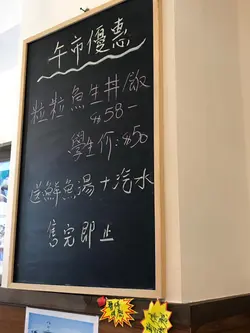 午市優惠
粒粒魚生丼飯
$58-
學生价:$50
送鮮魚湯+汽水
售完即止